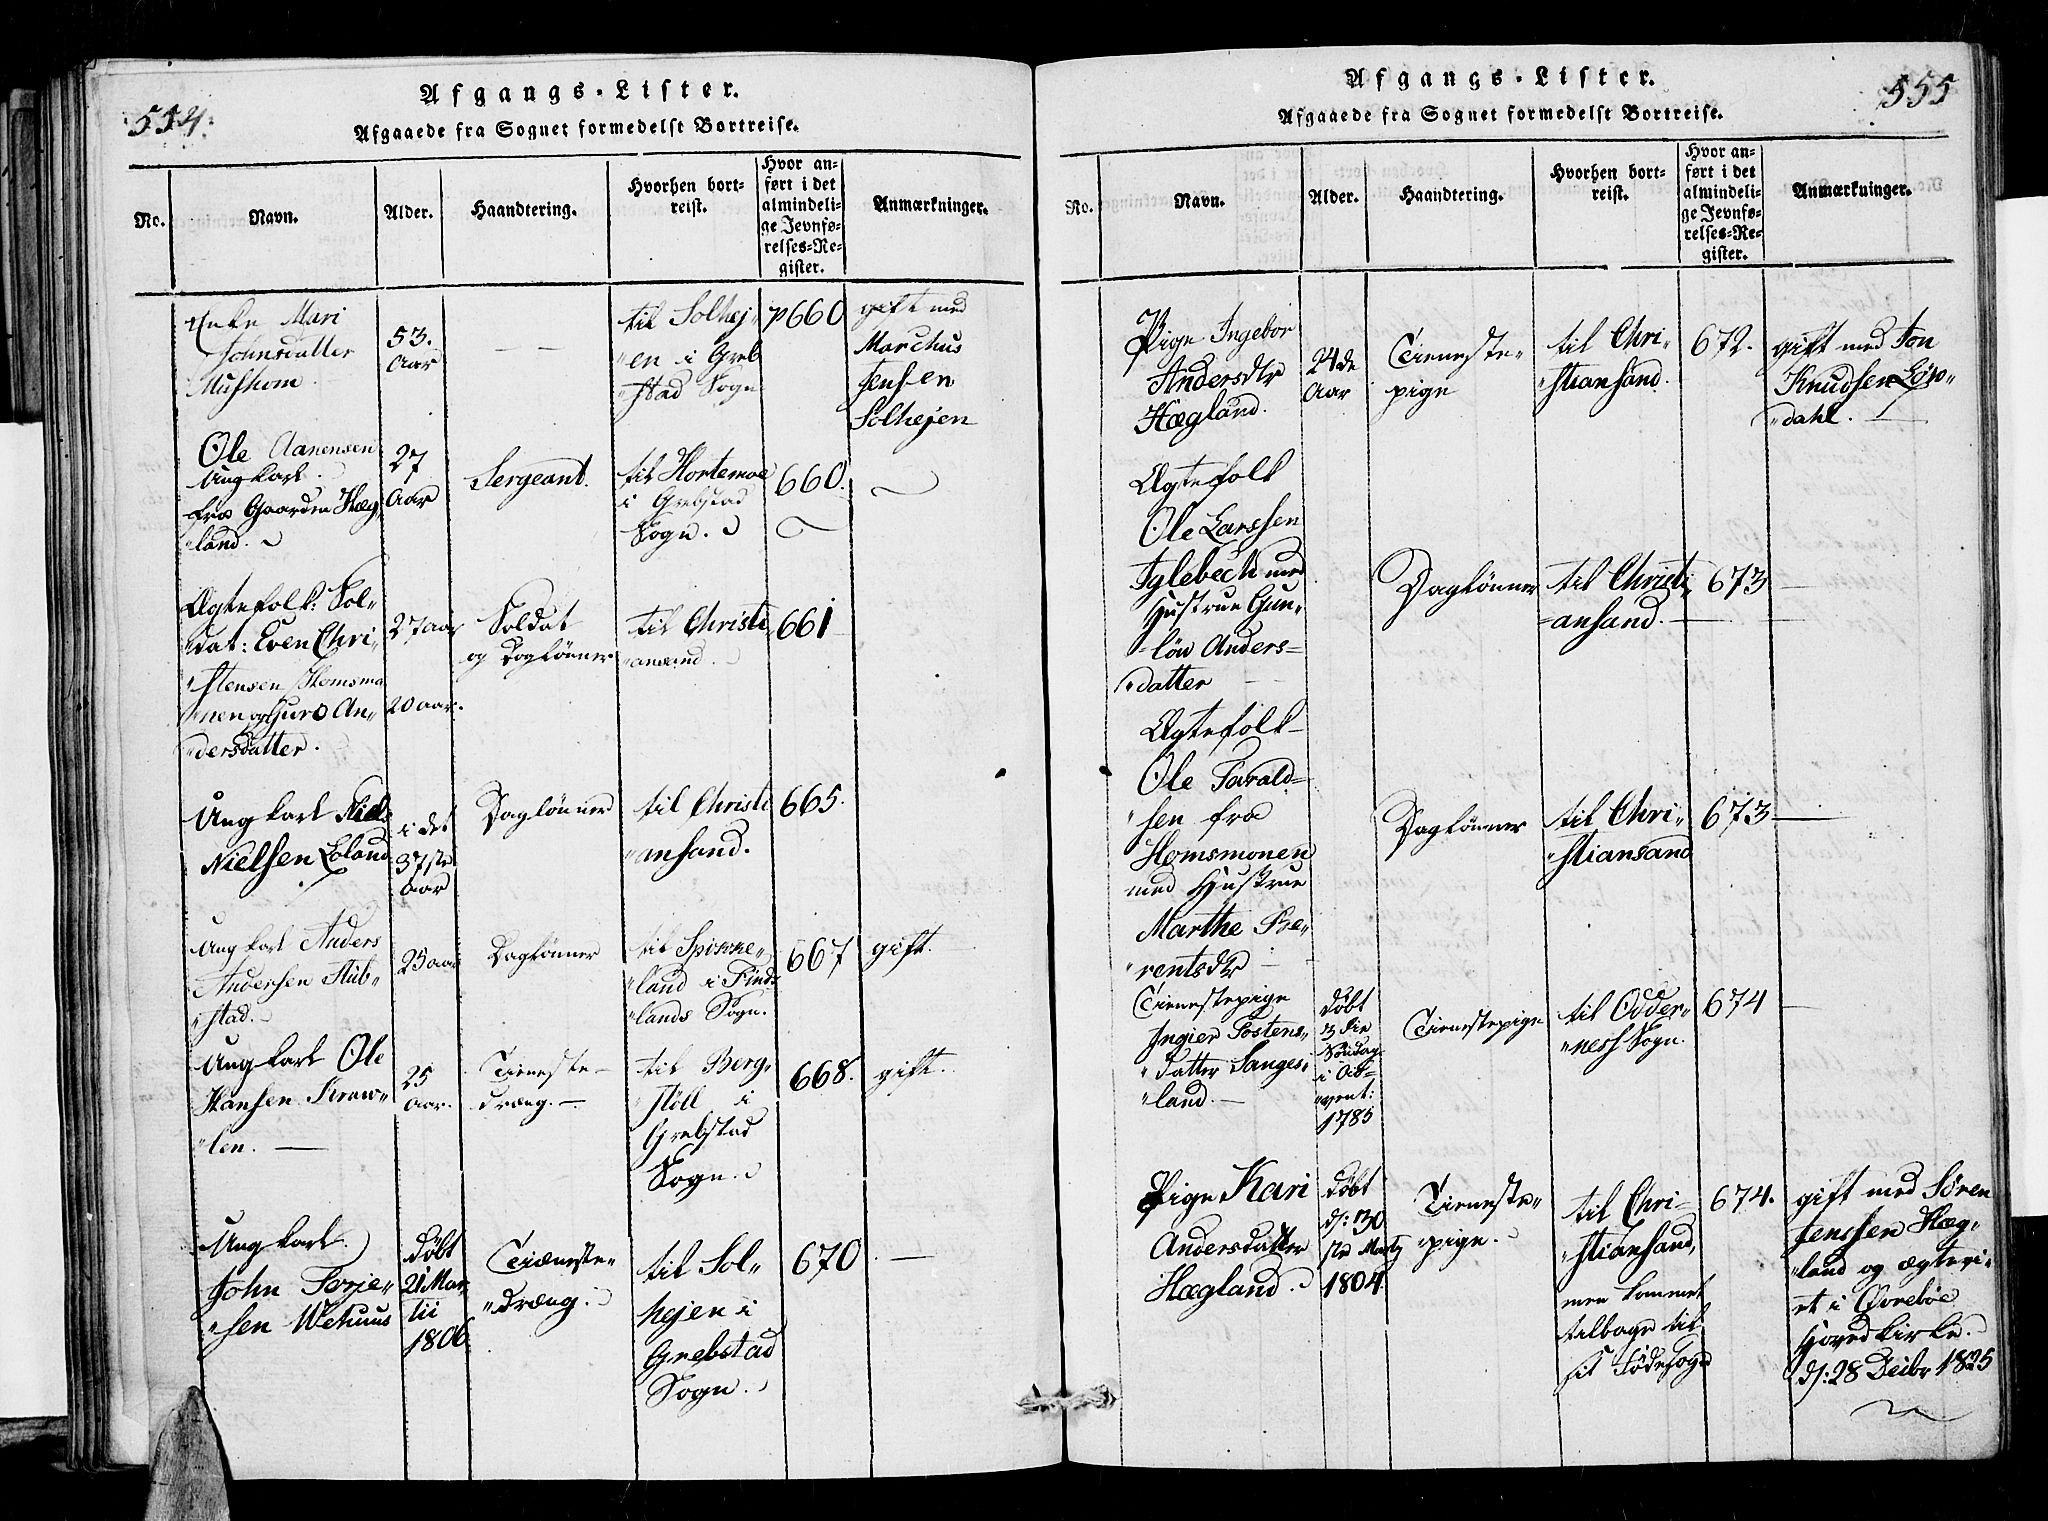 554.
Afgangs-Lister.
Afgaaede fra Sognet formedelst Bortreise.
No.
Navn.
Alder.
Haandtering.
Hvorhen bort-
reist.
Hvor an-
ført i det
almindeli-
ge Jevnfø-
relses-Re-
gister.
Anmærkninger.
Enke Mari
Johnsdatter
Mushom
53.
Aar
— —
til Solhej
"en i Greb
"stad Sogn
p660
gift med
Marchus
Jensen
Solhejen
Ole Aanensen
Ungkarl.
fra Gaarden Hæg
"land.
27
Aar
Sergeant.
til Hortemoe
i Grebstad
Sogn.
660.
Ægtefolk: Sol"
"dat: Even Chri"
"stensen Homsmo
"nen og Guro An"
"dersdatter.
27 aar
20 aar.
Soldat
og Daglønner
til Christi
"ansand.
661
Ungkarl Niels
Nielsen Loland
i det
37te
Aar
Daglønner
til Christi
"ansand.
665.
Ungkarl Anders
Andersen Stub"
"stad.
25 aar
Daglønner
til Spikke"
"land i Finds
"lands Sogn.
667
gift.
Ungkarl Ole
Hansen Kraw"
"len. —
25
Aar.
Tieneste-
dræng. —
til Berg"
"stöll i
Grebstad
Sogn.
668.
gift.
Ungkarl
John Terje"
"sen Wehuus
døbt
21 Mar
tii
1806
Tiæneste"
"dræng.
til Sol"
hejen i
Grebstad
Sogn.
670
—
555
Afgangs-Lister.
Afgaaede fra Sognet formedelst Bortreise.
No.
Navn.
Alder.
Haandtering.
Hvorhen bort-
reist.
Hvor an-
ført i det
almindeli-
ge Jevnfø-
relses-Re-
gister.
Anmærkninger.
Pige Ingebor
Andersdtr
Hægland.
24de
Aar
Tieneste"
pige
til Chri"
"stiansand.
672.
gift med Jon
Knudsen Løw"
"dahl. —
Ægtefolk
Ole Larssen
Iglebech med
Hustrue Gun"
"löw Anders=
"datter
Daglønner
til Christi
=ansand. —
673
—
Ægtefolk
Ole Tarald=
"sen fra
Homsmonen
med Hustrue
Marthe Be"
"rentsdtr
Daglønner
til Chri"
"stiansand
673
—
Tienestepige
Ingier Tostens"
"datter Sanges"
"land. —
døbt
3die
Søndag
i Ad=
"vent:
1785
Tienestepige
til Odder"
"ness Sogn.
674
—
Pige Kari
Andersdatter
Hægland.
døbt
d: 30
te Martz
1804
Tieneste"
"pige.
til Chri"
"stiansand,
men kommet
tilbage til
sit Födesogn
674.
gift med Sören
Jenssen Hæg"
"land og ægtevi"
et i Övreböe
Hovedkirke.
d: 28 Decbr 1825